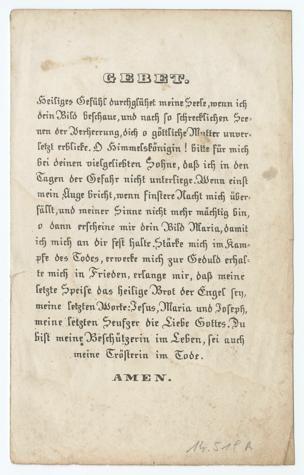 GEBET.
Heiliges Gefühl durchglühet meine Seele, wenn ich
dein Bild beschaue, und nach so schrecklichen Sce-
nen der Verheerung, dich o göttliche Mutter unver-
letzt erblicke. O Himmelskönigin! bitte für mich
bei deinen vielgeliebten Sohne, daß ich in den
Tagen der Gefahr nicht unterliege. Wenn einst
mein Auge bricht, wenn finstere Nacht mich über-
fällt, und meiner Sinne nicht mehr mächtig bin,
o dann erscheine mir dein Bild Maria, damit
ich mich an dir fest halte. Stärke mich im Kam-
pfe des Todes, erwecke mich zur Geduld erhal-
te mich in Frieden, erlange mir, daß meine
letzte Speise das heilige Brot der Engel sey,
meine letzten Worte: Jesus, Maria und Joseph,
meine letzten Seufzer die Liebe Gottes. Du
bist meine Beschützerin im Leben, sei auch
meine Trösterin im Tode.
AMEN.
14.518 R